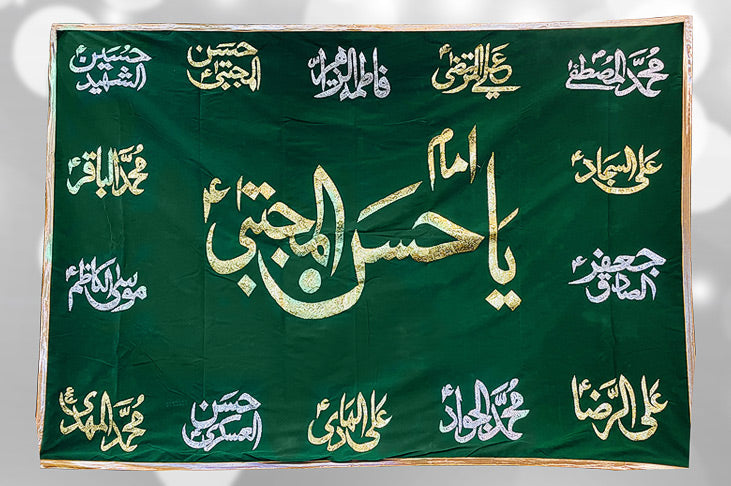 محمد المصطفیٰ ص
علی المرتضیٰ ع
فاطمة الزهراء
حسن المجتبیٰ ع
حسین الشهید ع
علی السجاد ع
محمد الباقر ع
یا امام حسن المجتبیٰ ع
جعفر الصادق ع
موسی الکاظم ع
علی الرضا ع
محمد الجواد ع
علی الهادی ع
حسن العسکری ع
محمد المهدی ع